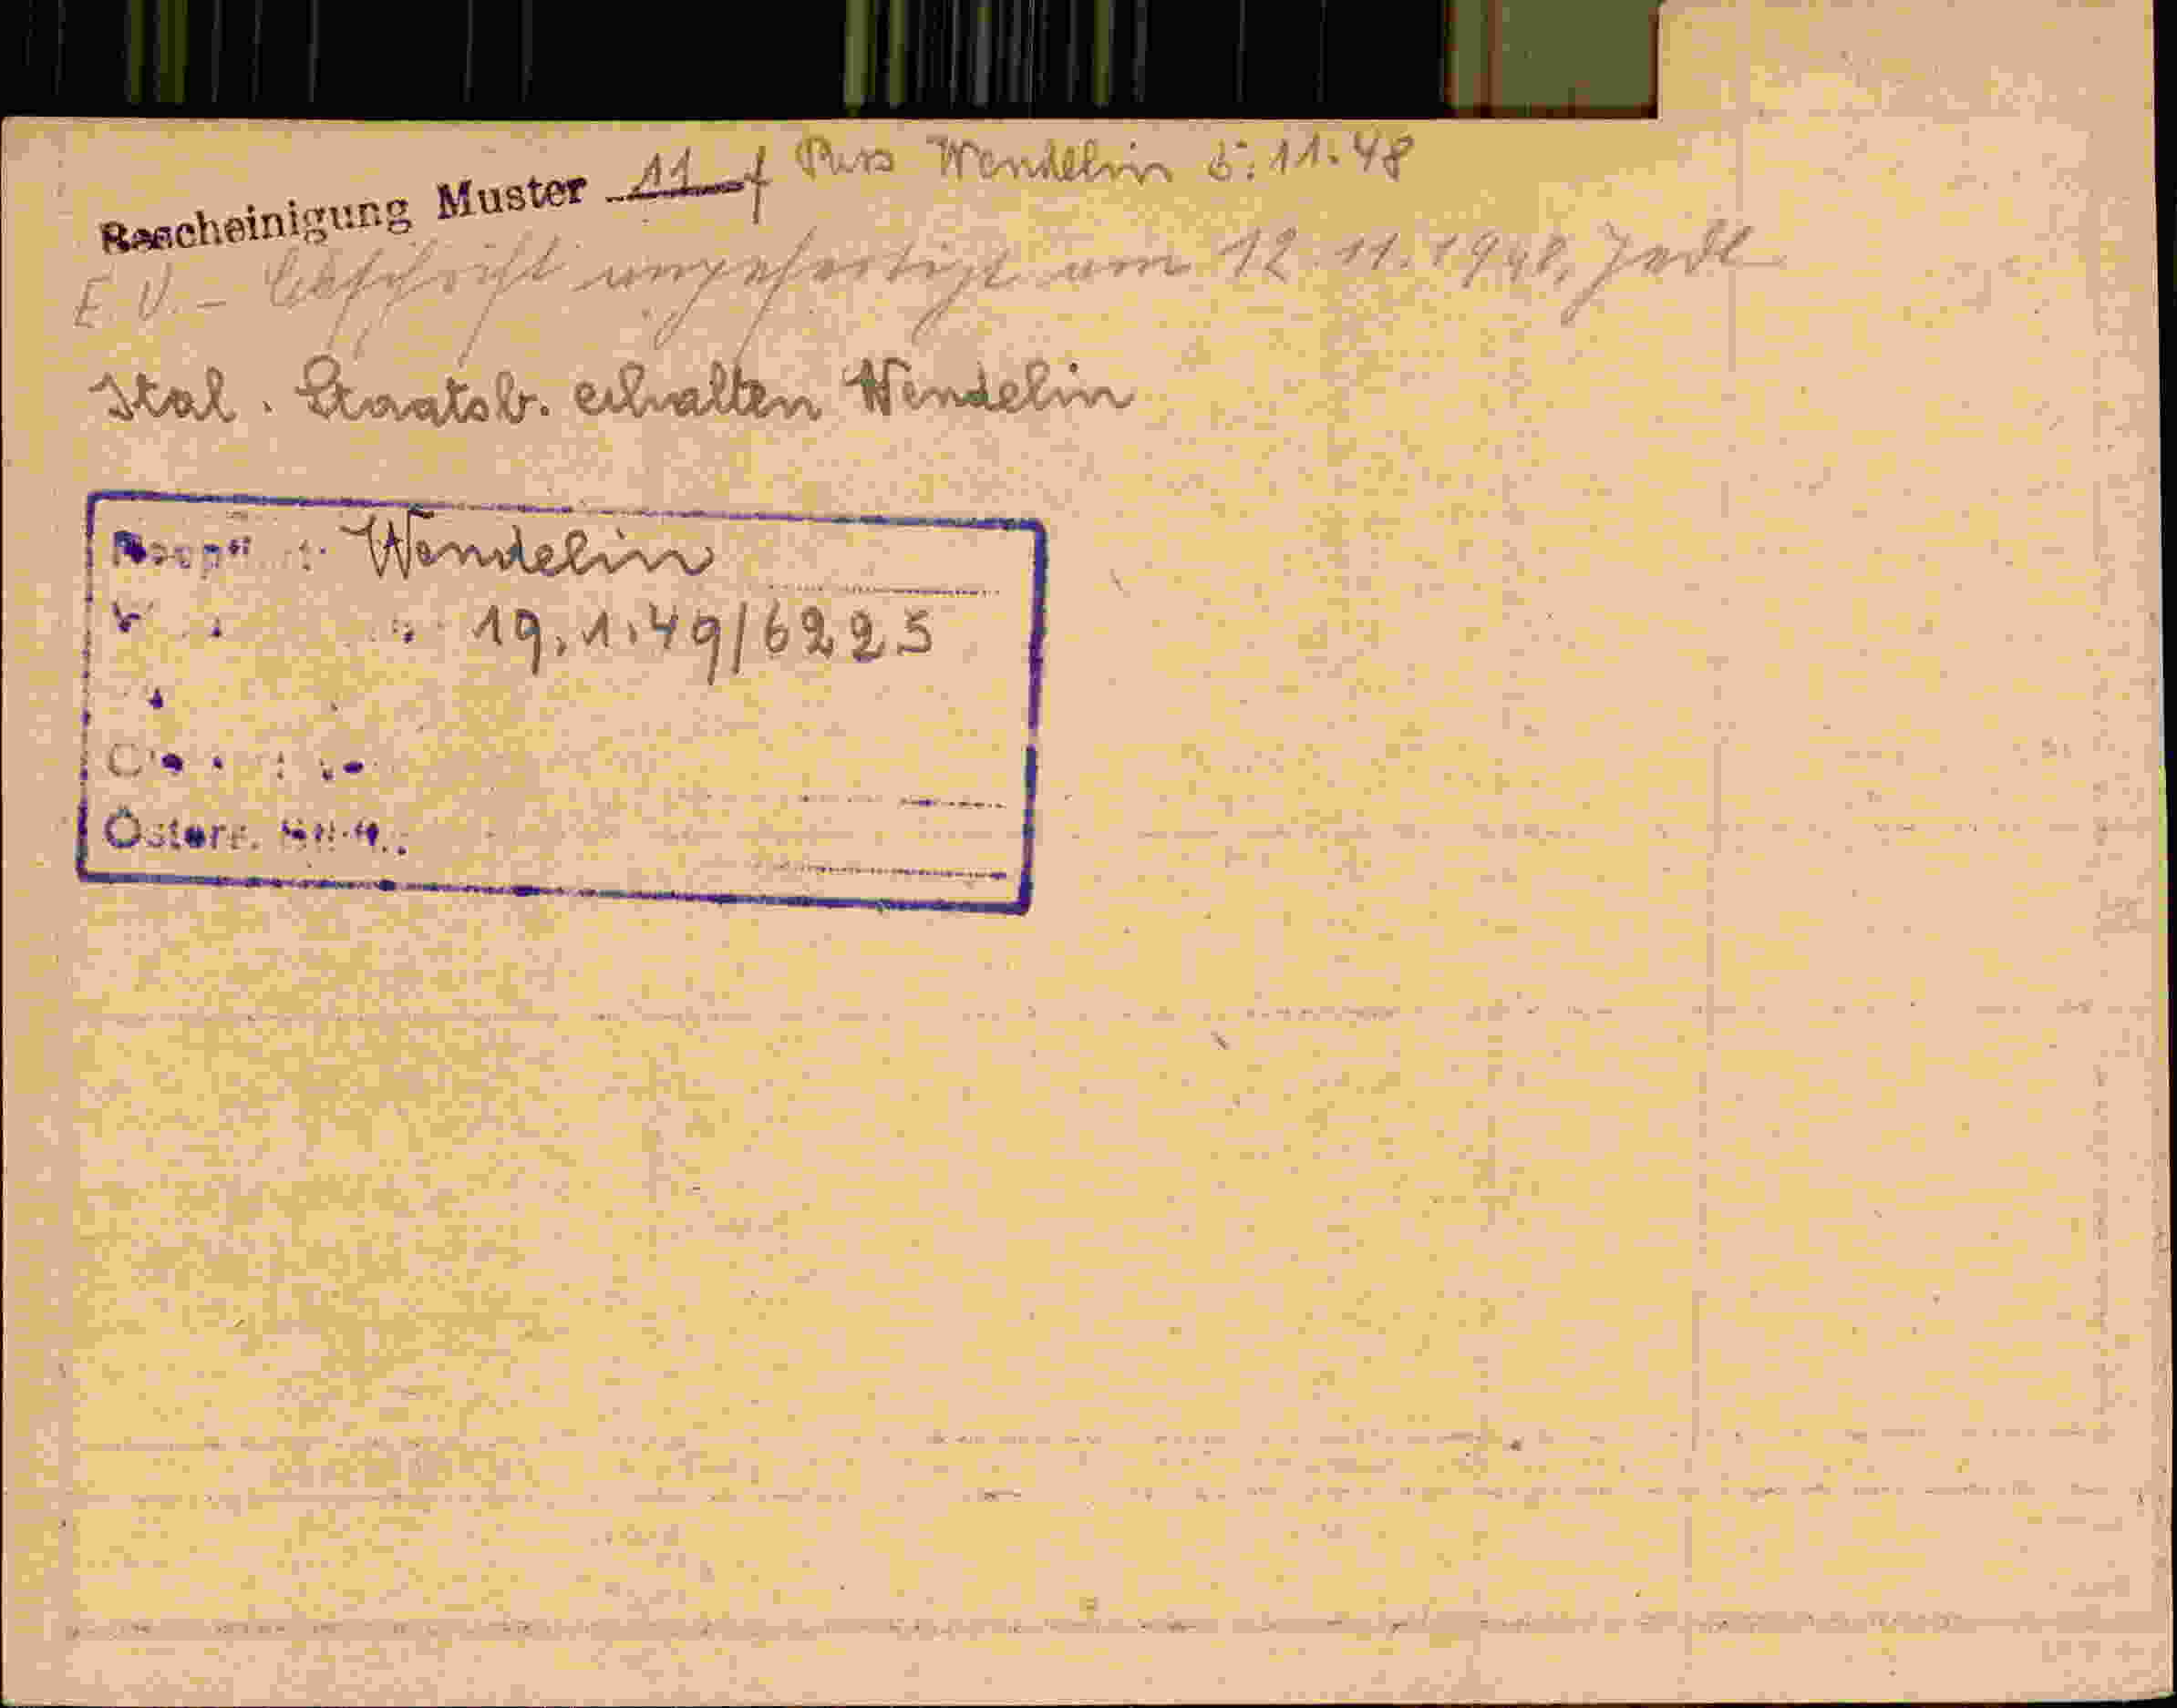 Bescheinigung Muster 11 f Purs Wendelin 5.11.48
E.V. - Abschrift angefertigt am 12.11.1948, Jedl
Ital. Staatsb. erhalten Wendelin
Wendelin
19.1.49/6225
Österr.